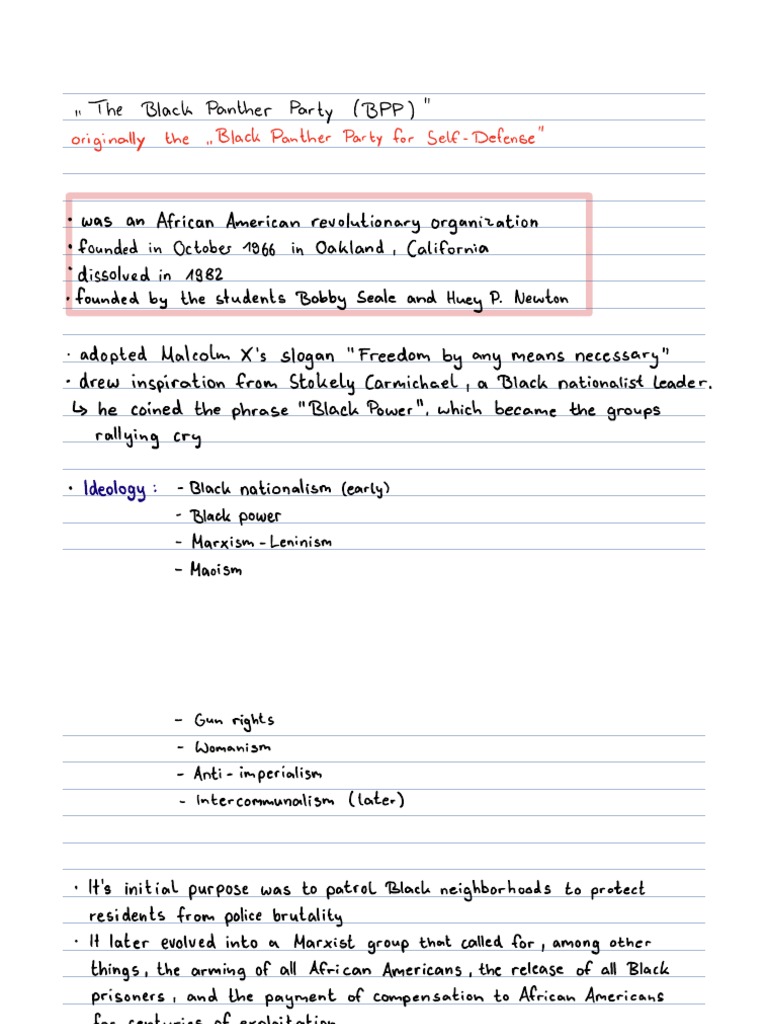 „The Black Panther Party (BPP)"
originally the „Black Panther Party for Self-Defense"
• was an African American revolutionary organization
• founded in October 1966 in Oakland, California
• dissolved in 1982
• founded by the students Bobby Seale and Huey P. Newton
• adopted Malcolm X's slogan "Freedom by any means necessary"
• drew inspiration from Stokely Carmichael, a Black nationalist leader.
↳ he coined the phrase "Black Power", which became the groups
rallying cry
• Ideology: - Black nationalism (early)
- Black power
- Marxism-Leninism
- Maoism
- Gun rights
- Womanism
- Anti-imperialism
- Intercommunalism (later)
• It's initial purpose was to patrol Black neighborhoods to protect
residents from police brutality
• It later evolved into a Marxist group that called for, among other
things, the arming of all African Americans, the release of all Black
prisoners, and the payment of compensation to African Americans
for centuries of exploitation